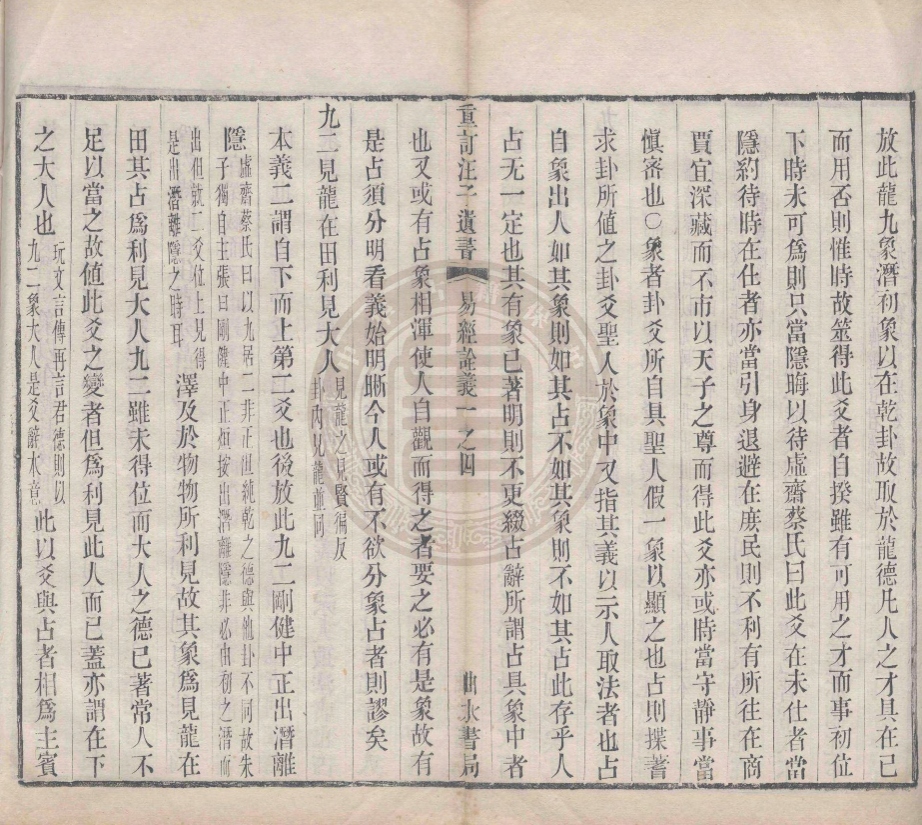 放此龍九象潛初象以在乾卦故取於龍德凡人之才具在己
而用否則惟時故筮得此爻者自揆雖有可用之才而事初位
下時未可爲則只當隱晦以待虛齋蔡氏曰此爻在未仕者當
隱約待時在仕者亦當引身退避在庶民則不利有所往在商
賈宜深藏而不市以天子之尊而得此爻亦或時當守靜事當
愼審也○象者卦爻所自具聖人假一象以顯之也占則揲蓍
求卦所值之卦爻聖人於象中又指其義以示人取法者也占
自象出人如其象則如其占不如其象則不如其占此存乎人
占无一定也其有象已著明則不更綴占辭所謂占具象中者
重訂汪子遺書 易經詮義一之四 曲水書局
也又或有占象相渾使人自觀而得之者要之必有是象故有
是占須分明看義始明晰今人或有不欲分象占者則謬矣
九二見龍在田利見大人見龍之見賢徧反
卦內見龍並同
本義二謂自下而上第二爻也後放此九二剛健中正出潛離
隱虛齋蔡氏曰以九居二非正但純乾之德與他卦不同故朱
子獨自主張曰剛健中正㷛按出潛離隱非必由初之潛而
出但就二爻位上見得
是出潛離隱之時耳
澤及於物物所利見故其象爲見龍在
田其占爲利見大人九二雖未得位而大人之德已著常人不
足以當之故値此爻之變者但爲利見此人而已蓋亦謂在下
之大人也玩文言傳再言君德則以
九二象大人是爻辭本意
此以爻與占者相爲主賓